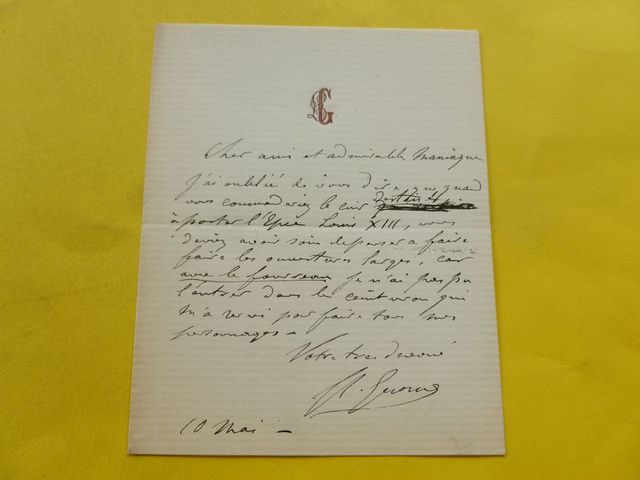 Cher ami et admirable Maniaque
j'ai oublié de vous dire que quand
vous commanderiez le cuir destiné
à porter l'Epée Louis XIII, vous
deviez avoir soin de penser à faire
faire les ouvertures larges, car
avec le fourreau je n'ai pas pu
l'entrer dans le ceinturon qui
m'a servi pour faire tous mes
personnages -
Votre tres devoué
Gerome
10 Mai -